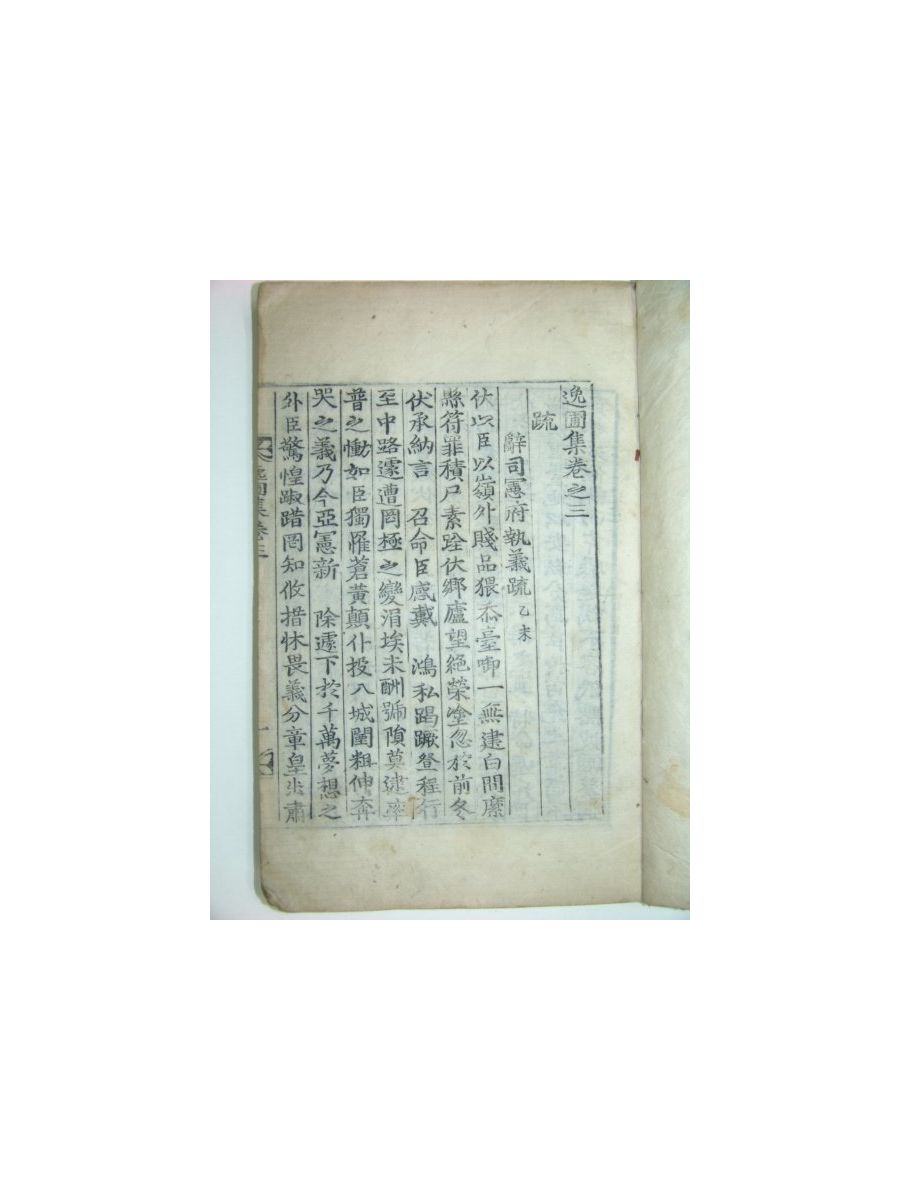 逸圃集卷之三
疏
辭司憲府執義疏 乙未
伏以臣以嶺外賤品猥忝臺啣一無建白間縻
縣符罪積尸素跧伏鄕廬望絶榮塗忽於前冬
伏承納言 召命臣感戴 鴻私蹋蹶登程行
至中路遽遭罔極之變涓埃未酬號隕莫逮率
普之慟如臣獨罹蒼黃顚仆投入城闉粗伸奔
哭之義乃今亞憲新 除遽下於千萬夢想之
外臣驚惶踧踖罔知攸措怵畏義分章皇出肅
逸圃集卷三
一